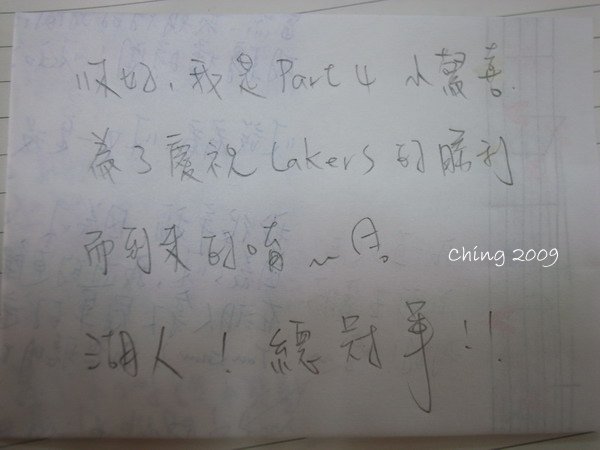 你好、我是Part 4 小驚喜
為了慶祝Lakers的勝利
而到來的唷~
湖人！總冠軍！！
Ching 2009